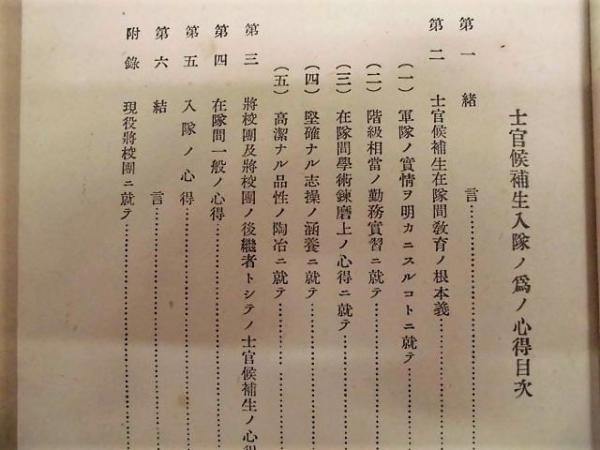 士官候補生入隊ノ爲ノ心得目次
第一 緒言
第二 士官候補生在隊間敎育ノ根本義
(一) 軍隊ノ實情ヲ明カニスルコトニ就テ
(二) 階級相當ノ勤務實習ニ就テ
(三) 在隊間學術鍊磨上ノ心得ニ就テ
(四) 堅確ナル志操ノ涵養ニ就テ
(五) 高潔ナル品性ノ陶冶ニ就テ
第三 將校團及將校團ノ後繼者トシテノ士官候補生ノ心得
第四 在隊間一般ノ心得
第五 入隊ノ心得
第六 結言
附錄 現役將校團ニ就テ